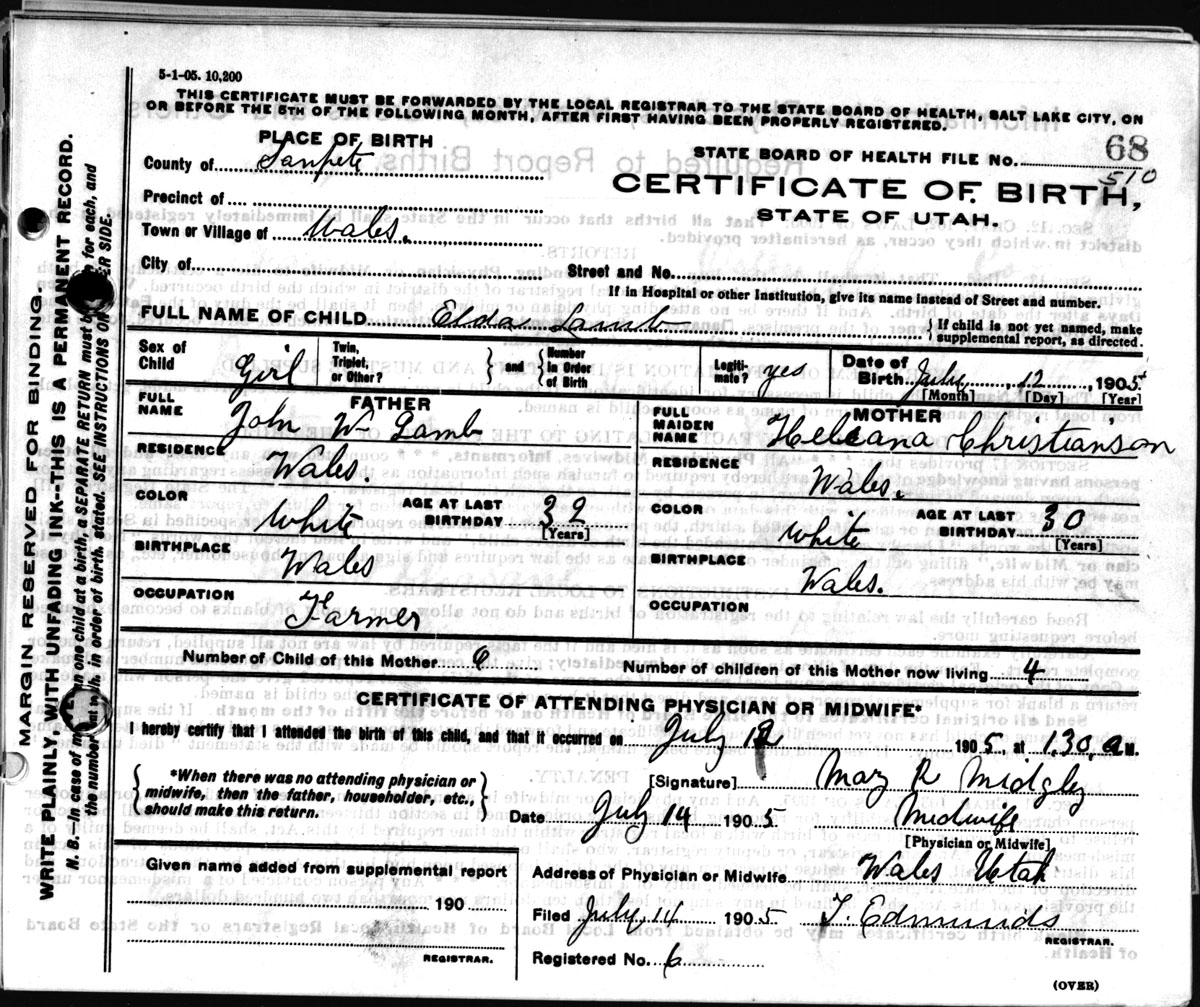 5-1-05. 10,200
THIS CERTIFICATE MUST BE FORWARDED BY THE LOCAL REGISTRAR TO THE STATE BOARD OF HEALTH, SALT LAKE CITY, ON
OR BEFORE THE 5TH OF THE FOLLOWING MONTH, AFTER FIRST HAVING BEEN PROPERLY REGISTERED.
PLACE OF BIRTH
STATE BOARD OF HEALTH FILE No. 68
510
County of Sanpete
CERTIFICATE OF BIRTH,
STATE OF UTAH.
Precinct of
Town or Village of Wales.
City of
Street and No.
If in Hospital or other Institution, give its name instead of Street and number.
FULL NAME OF CHILD Elda Lamb
If child is not yet named, make
supplemental report, as directed.
Sex of Child Girl Twin, Triplet, or Other? and Number In Order of Birth Legiti-mate? yes Date of Birth July 12, 1905
[Month] [Day] [Year]
FATHER
FULL NAME John W Lamb
RESIDENCE Wales.
COLOR White AGE AT LAST BIRTHDAY 39
[Years]
BIRTHPLACE Wales
OCCUPATION Farmer
MOTHER
FULL MAIDEN NAME Heleana Christianson
RESIDENCE Wales.
COLOR White AGE AT LAST BIRTHDAY 30
[Years]
BIRTHPLACE Wales.
OCCUPATION
Number of Child of this Mother 6 Number of children of this Mother now living 4
CERTIFICATE OF ATTENDING PHYSICIAN OR MIDWIFE*
I hereby certify that I attended the birth of this child, and that it occurred on July 12, 1905, at 1.30, a M.
*When there was no attending physician or
midwife, then the father, householder, etc.,
should make this return.
[Signature] Mary R Midgley
Date July 14 1905 Midwife
[Physician or Midwife]
Given name added from supplemental report
190
REGISTRAR.
Address of Physician or Midwife Wales Utah
Filed July 14 1905 T. Edmunds
REGISTRAR.
Registered No. 6
(OVER)
MARGIN RESERVED FOR BINDING
WRITE PLAINLY WITH UNFADING INK--THIS IS A PERMANENT RECORD.
N. B.--In case of more than one child at a birth, a SEPARATE RETURN must be made for each, and
the number of each, in order of birth, stated. SEE INSTRUCTIONS ON OTHER SIDE.